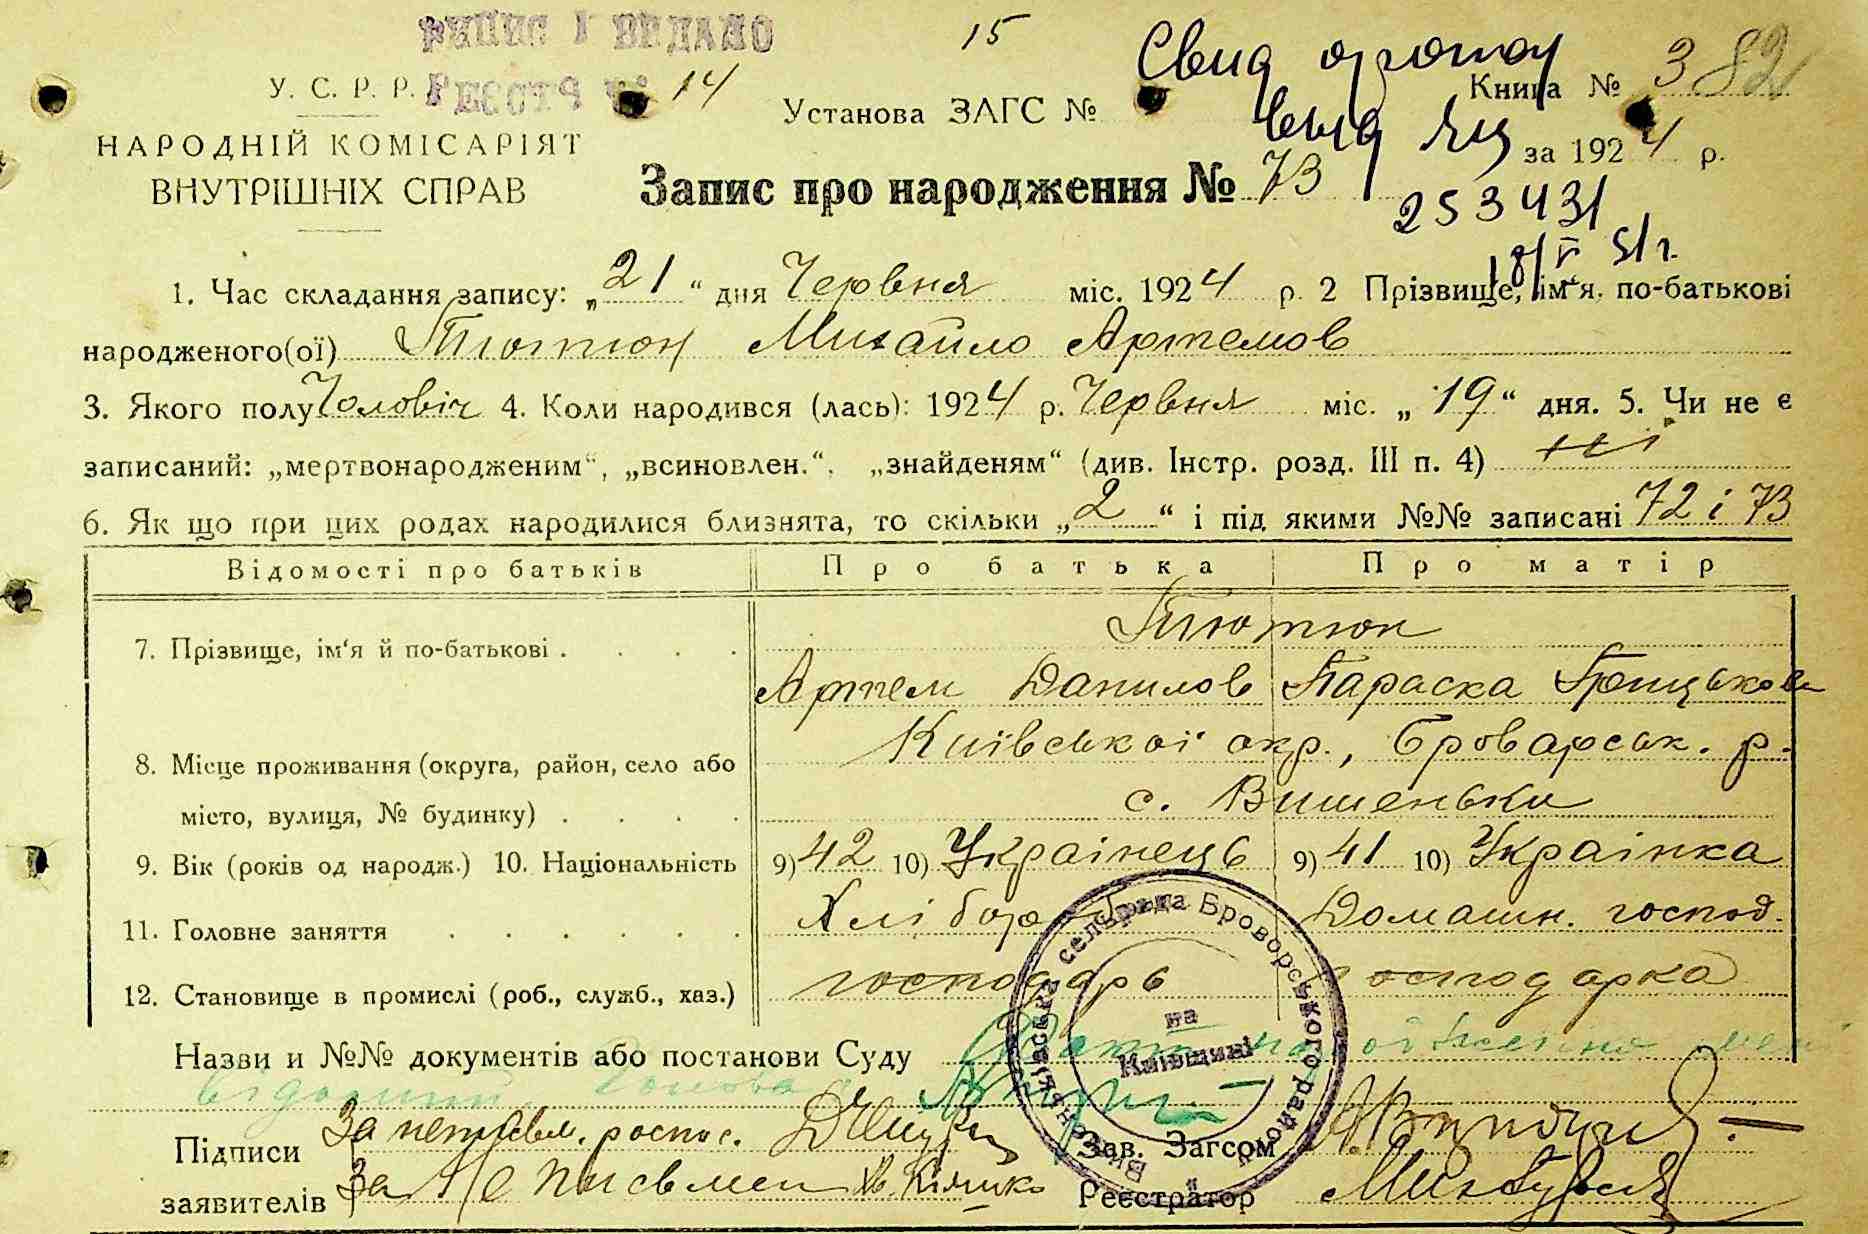 15
У. С. Р. Р.
14
Установа ЗАГС №
Книга № 382
НАРОДНІЙ КОМІСАРІЯТ
вид
за 1924 р.
ВНУТРІШНІХ СПРАВ
Запис про народження № 73
253431
18/V 51 г.
1. Час складання запису: „21“ дня Червня міс. 1924 р. 2 Прізвище, ім‘я, по-батькові
народженого(ої) Тютюн Михайло Артемов
3. Якого полу Чоловіч 4. Коли народився (лась): 1924 р. Червня міс. „19“ дня. 5. Чи не є
записаний: „мертвонародженим“, „всиновлен.“, „знайденям“ (див. Інстр. розд. III п. 4) ні
6. Як що при цих родах народилися близнята, то скільки „2“ і під якими №№ записані 72 і 73
Відомості про батьків Про батька Про матір
Тютюн
7. Прізвище, ім‘я й по-батькові . . . .
Артем Данилов Параска Грицькова
Київської окр., Броварськ. р.
8. Місце проживання (округа, район, село або
с. Вишеньки
місто, вулиця, № будинку) . . . .
9. Вік (років од народж.) 10. Національність 9) 42 10) Українець 9) 41 10) Українка
11. Головне заняття . . . . . . Хлібороб Домашн. господ.
12. Становище в промислі (роб., служб., хаз.) господарь господарка
сельрада Броворського району
на
Київщині
Назви и №№ документів або постанови Суду
Підписи За неписьм. роспис.
Зав. Загсом
заявителів За не письмен
Реєстратор